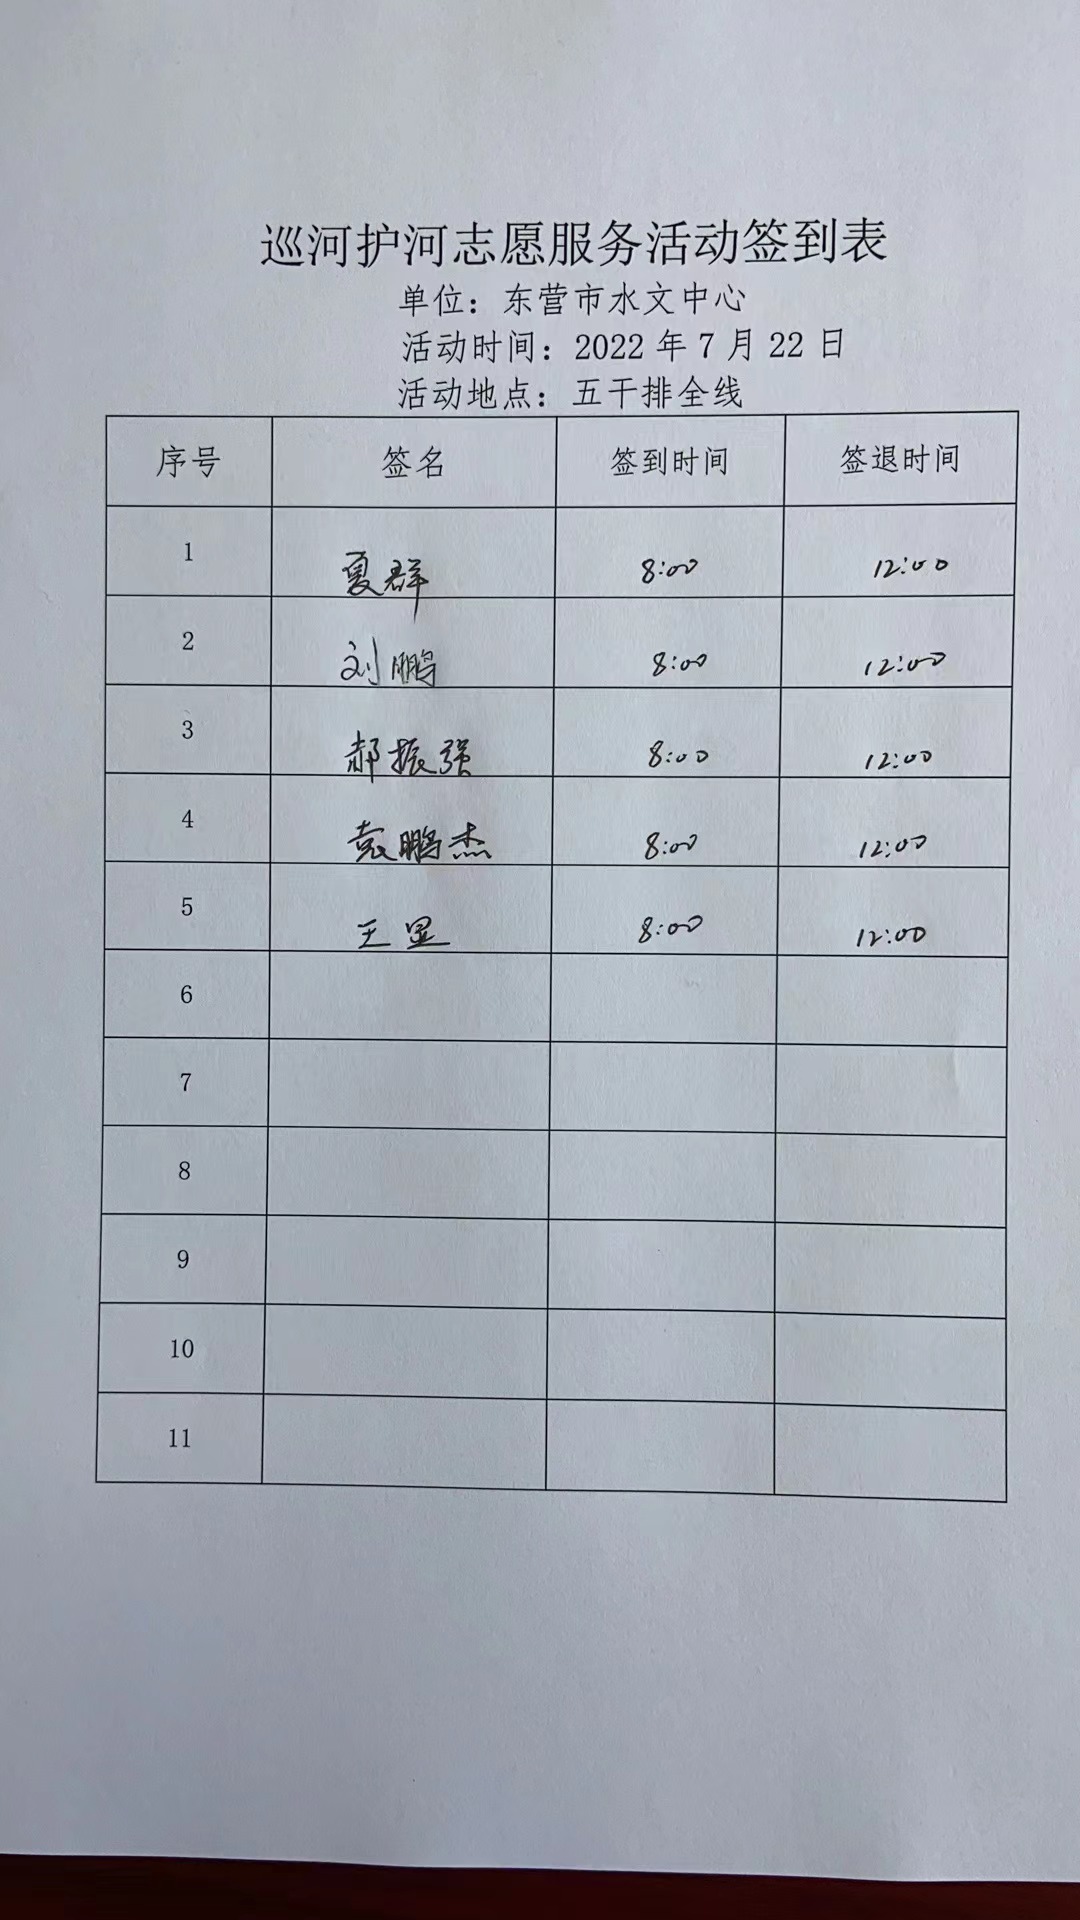 巡河护河志愿服务活动签到表
单位：东营市水文中心
活动时间：2022 年 7 月 22 日
活动地点：五干排全线
序号 签名 签到时间 签退时间
1 夏群 8:00 12:00
2 刘鹏 8:00 12:00
3 郝振强 8:00 12:00
4 袁鹏杰 8:00 12:00
5 王昱 8:00 12:00
6
7
8
9
10
11